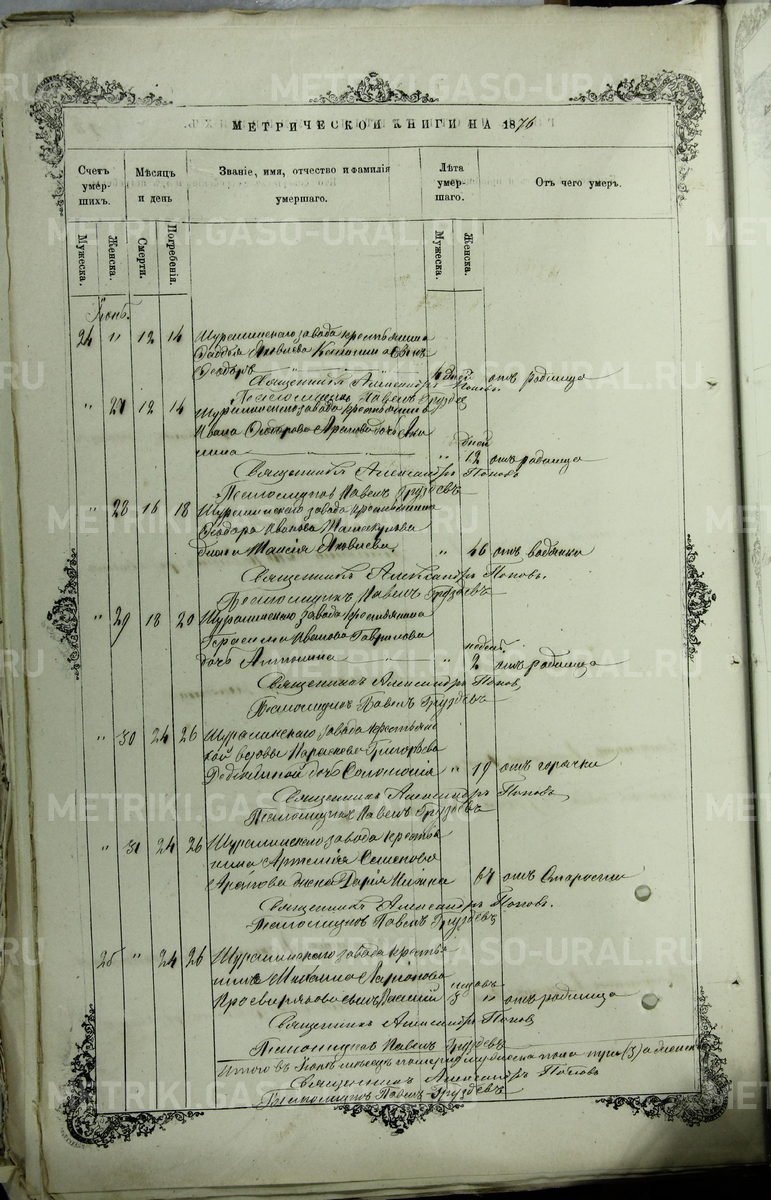 МЕТРИЧЕСКОЙ КНИГИ НА 1876
Счетъ умер-шихъ. Мѣсяцъ и день Званіе, имя, отчество и фамилія умершаго. Лѣта умер-шаго. Отъ чего умеръ.
Мужеска. Женска. Смерти. Погребенія. Мужеска. Женска.
24 " 12 14 Шуралинскаго завода крестьянина
Ѳаддея Яковлева сынъ
Ѳеодоръ дней отъ родимца
Священникъ Александръ Поповъ
Псаломщикъ Павелъ Груздевъ
" 12 14 Шуралинскаго завода крестьянина
Ивана Ѳедорова Арапова дочь
" дней 12 отъ родимца
Священникъ Александръ Поповъ
Псаломщикъ Павелъ Груздевъ
" 28 16 18 Шуралинскаго завода крестьянина
Ѳеодора Иванова
жена Таисія Яковлева " 46 отъ водянки
Священникъ Александръ Поповъ.
Псаломщикъ Павелъ Груздевъ
" 29 18 20 Шуралинскаго завода крестьянина
Герасима Иванова Гаврилова
дочь Антонина " недѣл. 2 отъ родимца
Священникъ Александръ Поповъ
Псаломщикъ Павелъ Груздевъ
" 30 24 26 Шуралинскаго завода крестьян
ской вдовы Парасковьи Григорьевой
дочь Соломонія " 19 отъ горячки
Священникъ Александръ Поповъ
Псаломщикъ Павелъ Груздевъ
" 31 24 26 Шуралинскаго завода крестья
нина Артемія Семенова
Арапова жена Дарія 64 отъ старости
Священникъ Александръ Поповъ.
Псаломщикъ Павелъ Груздевъ
25 " 24 26 Шуралинскаго завода крестья
нина Ларіонова
Просвирякова сынъ Василій недѣль 3 " отъ родимца
Священникъ Александръ Поповъ
Псаломщикъ Павелъ Груздевъ
Итого въ мѣсяцѣ померло мужеска пола три (3) а женска
Священникъ Александръ Поповъ
Псаломщикъ Павелъ Груздевъ
METRIKI.GASO-URAL.RU